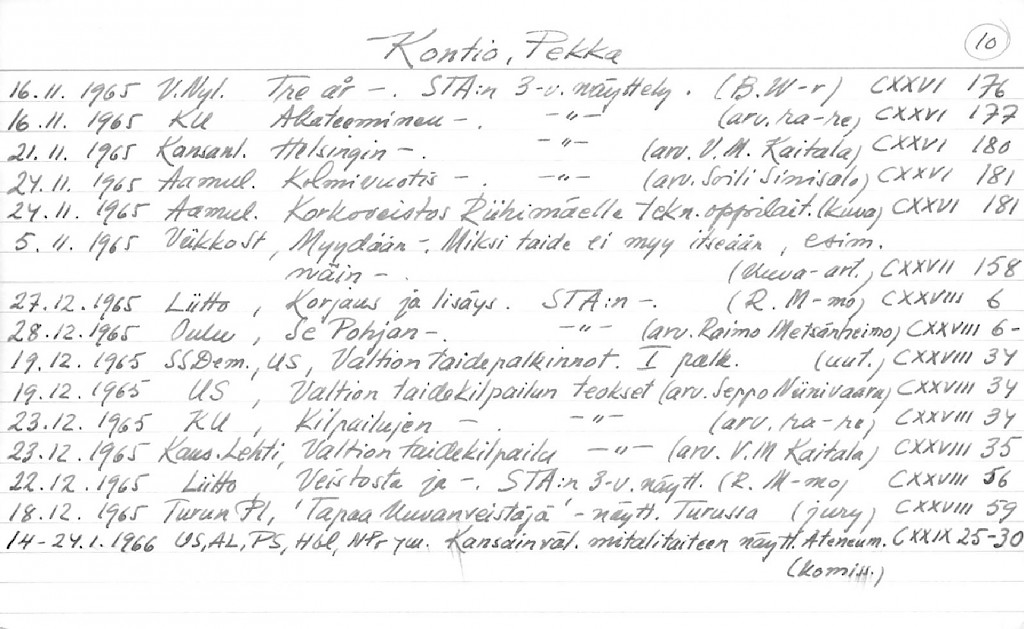 Kontio, Pekka 10
16.11. 1965 V.Nyl. Tre år -. STA:n 3-v. näyttely. (B.W-r) CXXVI 176
16.11. 1965 KU Akateeminen -. -"- (arv. ra-re) CXXVI 177
21.11. 1965 Kansanl. Helsingin -. -"- (arv. V.M. Kaitala) CXXVI 180
24.11. 1965 Aamul. Kolmivuotis -. -"- (arv. Soili Sinisalo) CXXVI 181
24.11. 1965 Aamul. Korkoveistos Riihimäelle tekn.oppilait. (kuva) CXXVI 181
5.11. 1965 Viikkost, Myydään -. Miksi taide ei myy itseään, esim.
näin -. (kuva-art.) CXXVII 158
27.12.1965 Liitto, Korjaus ja lisäys. STA:n -. (R. M-mo) CXXVIII 6
28.12.1965 Oulu, Se Pohjan -. -"- (arv. Raimo Metsänheimo) CXXVIII 6-
19.12.1965 SSDem., US, Valtion taidepalkinnot. I palk. (uut.) CXXVIII 34
19.12.1965 US, Valtion taidekilpailun teokset (arv. Seppo Niinivaara) CXXVIII 34
23.12.1965 KU, Kilpailujen -. -"- (arv. ra-re) CXXVIII 34
23.12.1965 Kans.Lehti, Valtion taidekilpailu -"- (arv. V.M Kaitala) CXXVIII 35
22.12.1965 Liitto, Veistosta ja -. STA:n 3-v. näytt. (R. M-mo) CXXVIII 56
18.12.1965 Turun Pl, 'Tapaa kuvanveistäjä' - näytt. Turussa (jury) CXXVIII 59
14-24.1.1966 US, AL, PS, Hbl, NPr ym. Kansainväl. mitalitaiteen näytt. Ateneum. CXXIX 25-30
(komiss.)